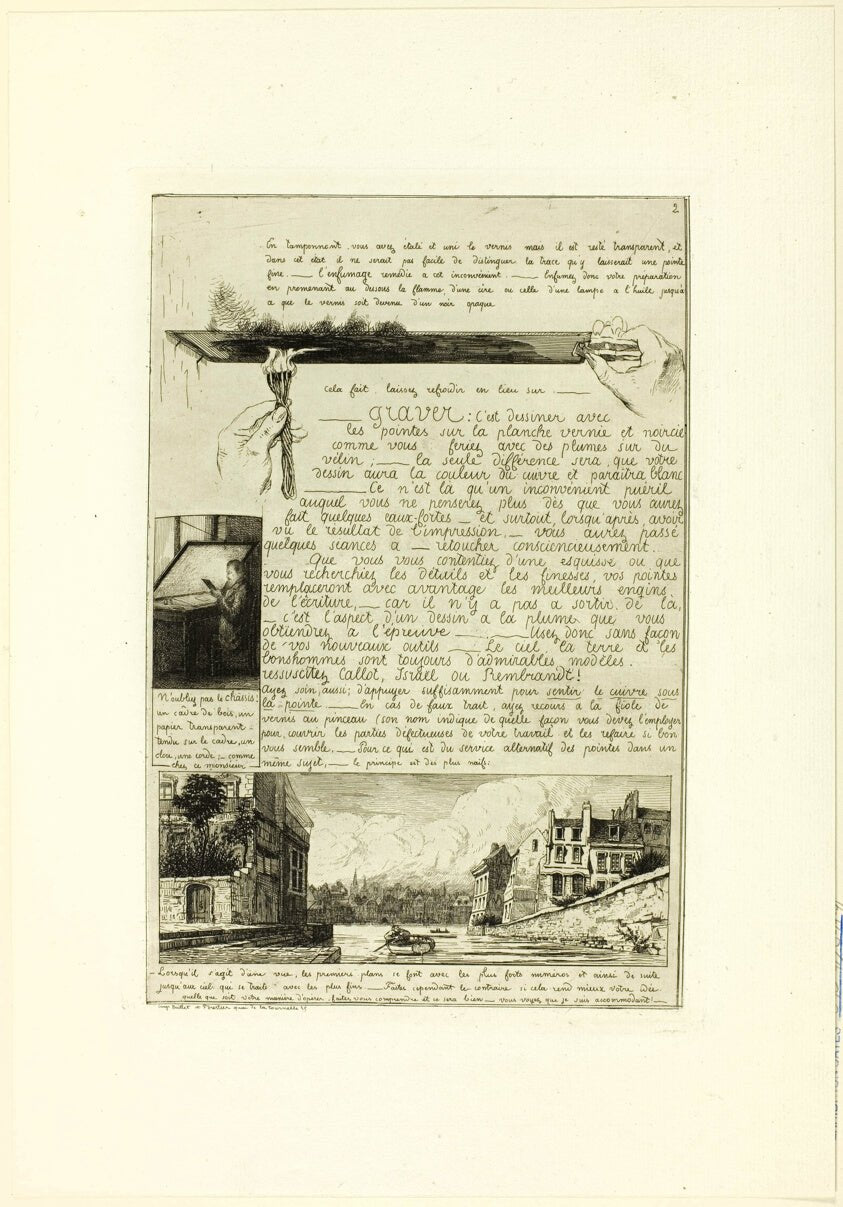 2
En tamponnant, vous avez étalé et uni le vernis mais il est resté transparent, et
dans cet état il ne serait pas facile de distinguer la trace qu'y laisserait une pointe
fine. — l'enfumage remédie a cet inconvénient. — Enfumez donc votre préparation
en promenant au dessous la flamme d'une cire ou celle d'une lampe a l'huile jusqu'a
a que le vernis soit devenu d'un noir opaque
Cela fait laissez refroidir en lieu sur. —
— graver : C'est dessiner avec
les pointes sur la planche vernie et noircie
comme vous feriez avec des plumes sur du
vélin ; — la seule différence sera, que votre
dessin aura la couleur du cuivre et paraitra blanc
— Ce n'est là qu'un inconvénient puéril
auquel vous ne penserez plus dès que vous aurez
fait quelques eaux-fortes — et surtout, lorsqu'après, avoir
vu le résultat de l'impression, — vous aurez passé
quelques séances a — retoucher consciencieusement.
Que vous vous contentiez d'une esquisse ou que
vous recherchiez les détails et les finesses, vos pointes
remplaceront avec avantage les meilleurs engins
de l'écriture, — car il n'y a pas a sortir de là,
— c'est l'aspect d'un dessin a la plume que vous
obtiendrez a l'épreuve — . — Usez donc sans façon
de vos nouveaux outils — Le ciel, la terre et les
bonshommes sont toujours d'admirables modèles.
ressuscitez Callot, Israël ou Rembrandt !
Ayez soin, aussi, d'appuyer suffisamment pour sentir le cuivre sous
la pointe. — En cas de faux trait, ayez recours à la fiole de
vernis au pinceau (son nom indique de quelle façon vous devez l'employer
pour couvrir les parties défectueuses de votre travail et les refaire si bon
vous semble. — Pour ce qui est du service alternatif des pointes dans un
même sujet, — le principe est des plus naïfs:
N'oubliez pas le châssis :
un cadre de bois, un
papier transparent
tendu sur le cadre, un
clou, une corde ; — comme
chez ce monsieur
— Lorsqu'il s'agit d'une vue, les premiers plans se font avec les plus forts numéros et ainsi de suite
jusqu'au ciel qui se traite avec les plus fins. — Faites cependant le contraire si cela rend mieux votre idée
quelle que soit votre manière d'opérer, faites vous comprendre et ce sera bien — vous voyez que je suis accommodant ! —
quai de la tournelle